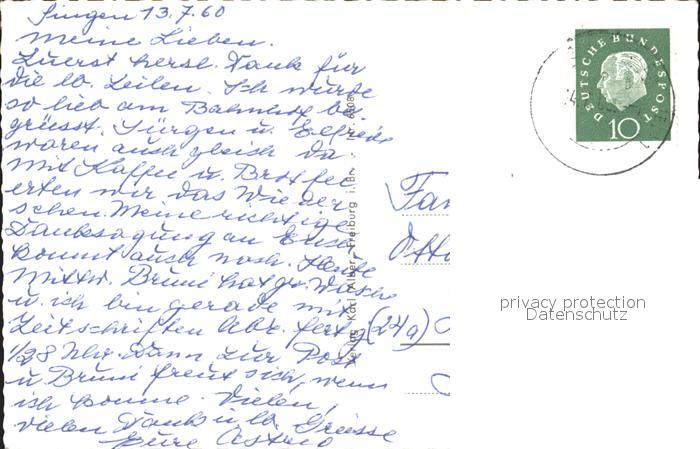 Singen 13.7.60
Meine Lieben.
Zuerst herzl. Dank für
die lb. Zeilen. Ich wurde
so lieb am Bahnhof be
grüsst. Jürgen u. Elfriede
waren auch gleich da
mit Kaffee u. Brot fei
erten wir das Wieder
sehen. Meine richtige
Danksagung an Euch
kommt auch noch. Heute
Mittw. Bruni hat gr. Wäsche
u. ich bin gerade mit
Zeitschriften Abr. fertig
1/28 Uhr. Dann zur Post
u. Bruni freut sich, wenn
ich komme. Vielen,
vielen Dank u. lb. Grüsse
Eure Astrid
Verlag Karl Alber, Freiburg i. Br.
Fam
Otto
(24a)
DEUTSCHE BUNDESPOST
10
privacy protection
Datenschutz